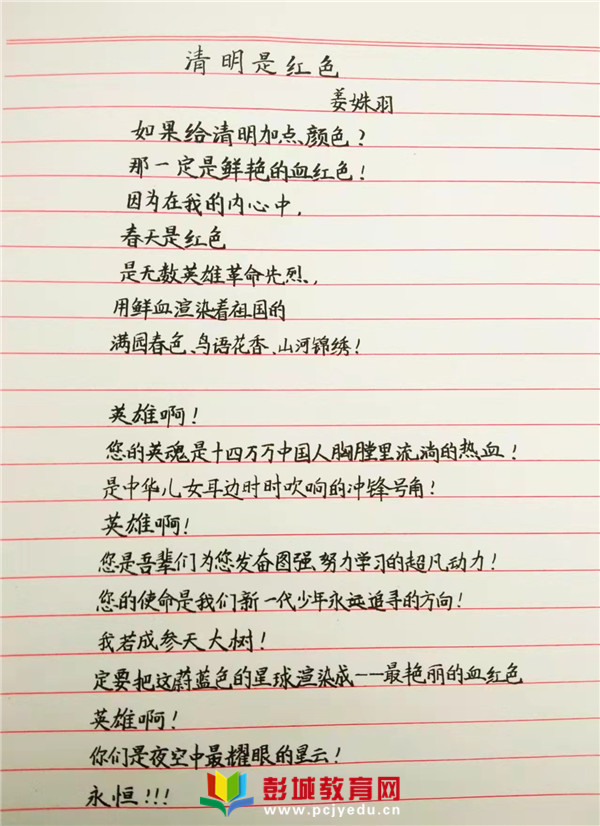 清明是红色
姜姝羽
如果给清明加点颜色？
那一定是鲜艳的血红色！
因为在我的内心中，
春天是红色
是无数英雄革命先烈，
用鲜血渲染着祖国的
满园春色、鸟语花香、山河锦绣！
英雄啊！
您的英魂是十四万万中国人胸膛里流淌的热血！
是中华儿女耳边时时吹响的冲锋号角！
英雄啊！
您是吾辈们为您发奋图强努力学习的超凡动力！
您的使命是我们新一代少年永远追寻的方向！
我若成参天大树！
定要把这蔚蓝色的星球渲染成——最艳丽的血红色
英雄啊！
你们是夜空中最耀眼的星云！
永恒！！！
彭城教育网
www.pcjyedu.cn